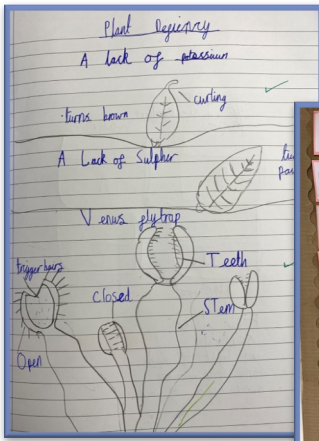 Plant Deficiency
A lack of potassium
curling
turns brown
A Lack of Sulpher
Venus flytrap
trigger hairs
Teeth
Closed
Stem
Open